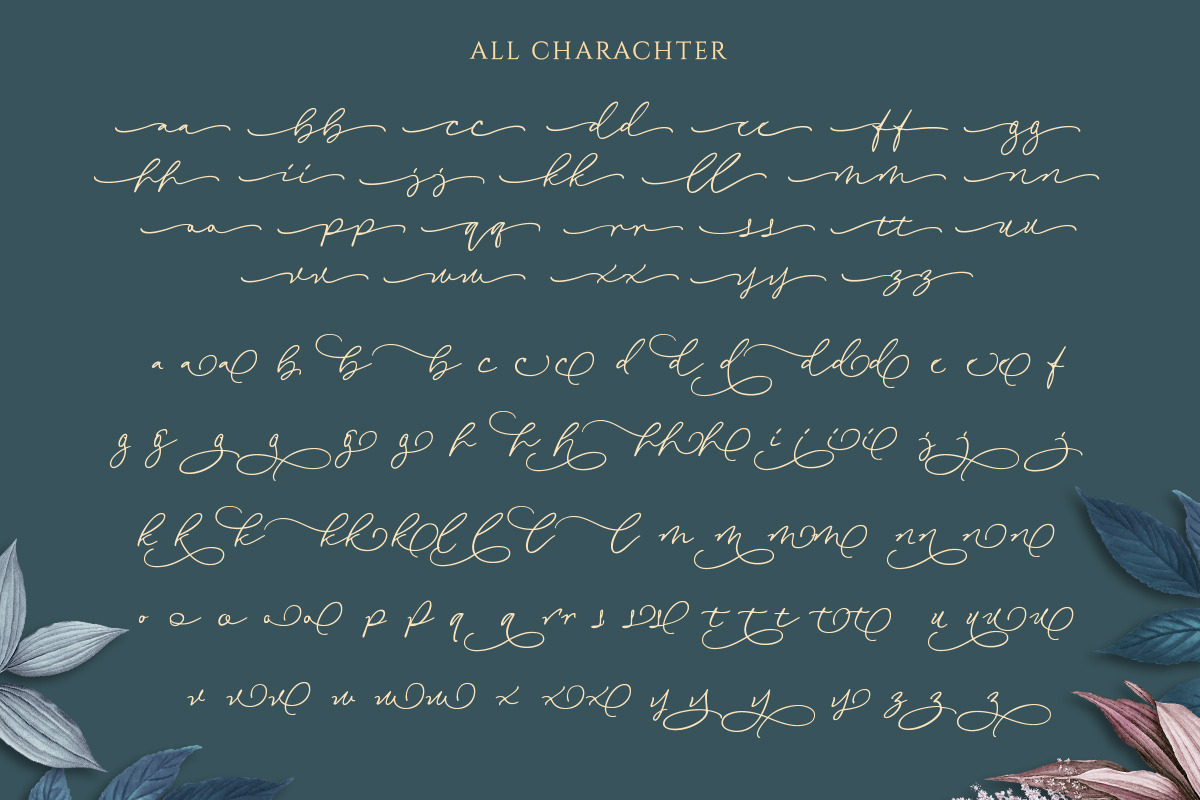 ALL CHARACHTER
aa bb cc dd ee ff gg
hh ii jj kk ll mm nn
oo pp qq rr ss tt uu
vv ww xx yy zz
a a a b b b c c c d d d d d d e e e f
g g g g g g h h h h h h i i i i j j j
k k k k k k l l l l m m m m n n n n
o o o o o p p q q r r s s s t t t t t u u u u
v v v w w w x x x y y y y z z z